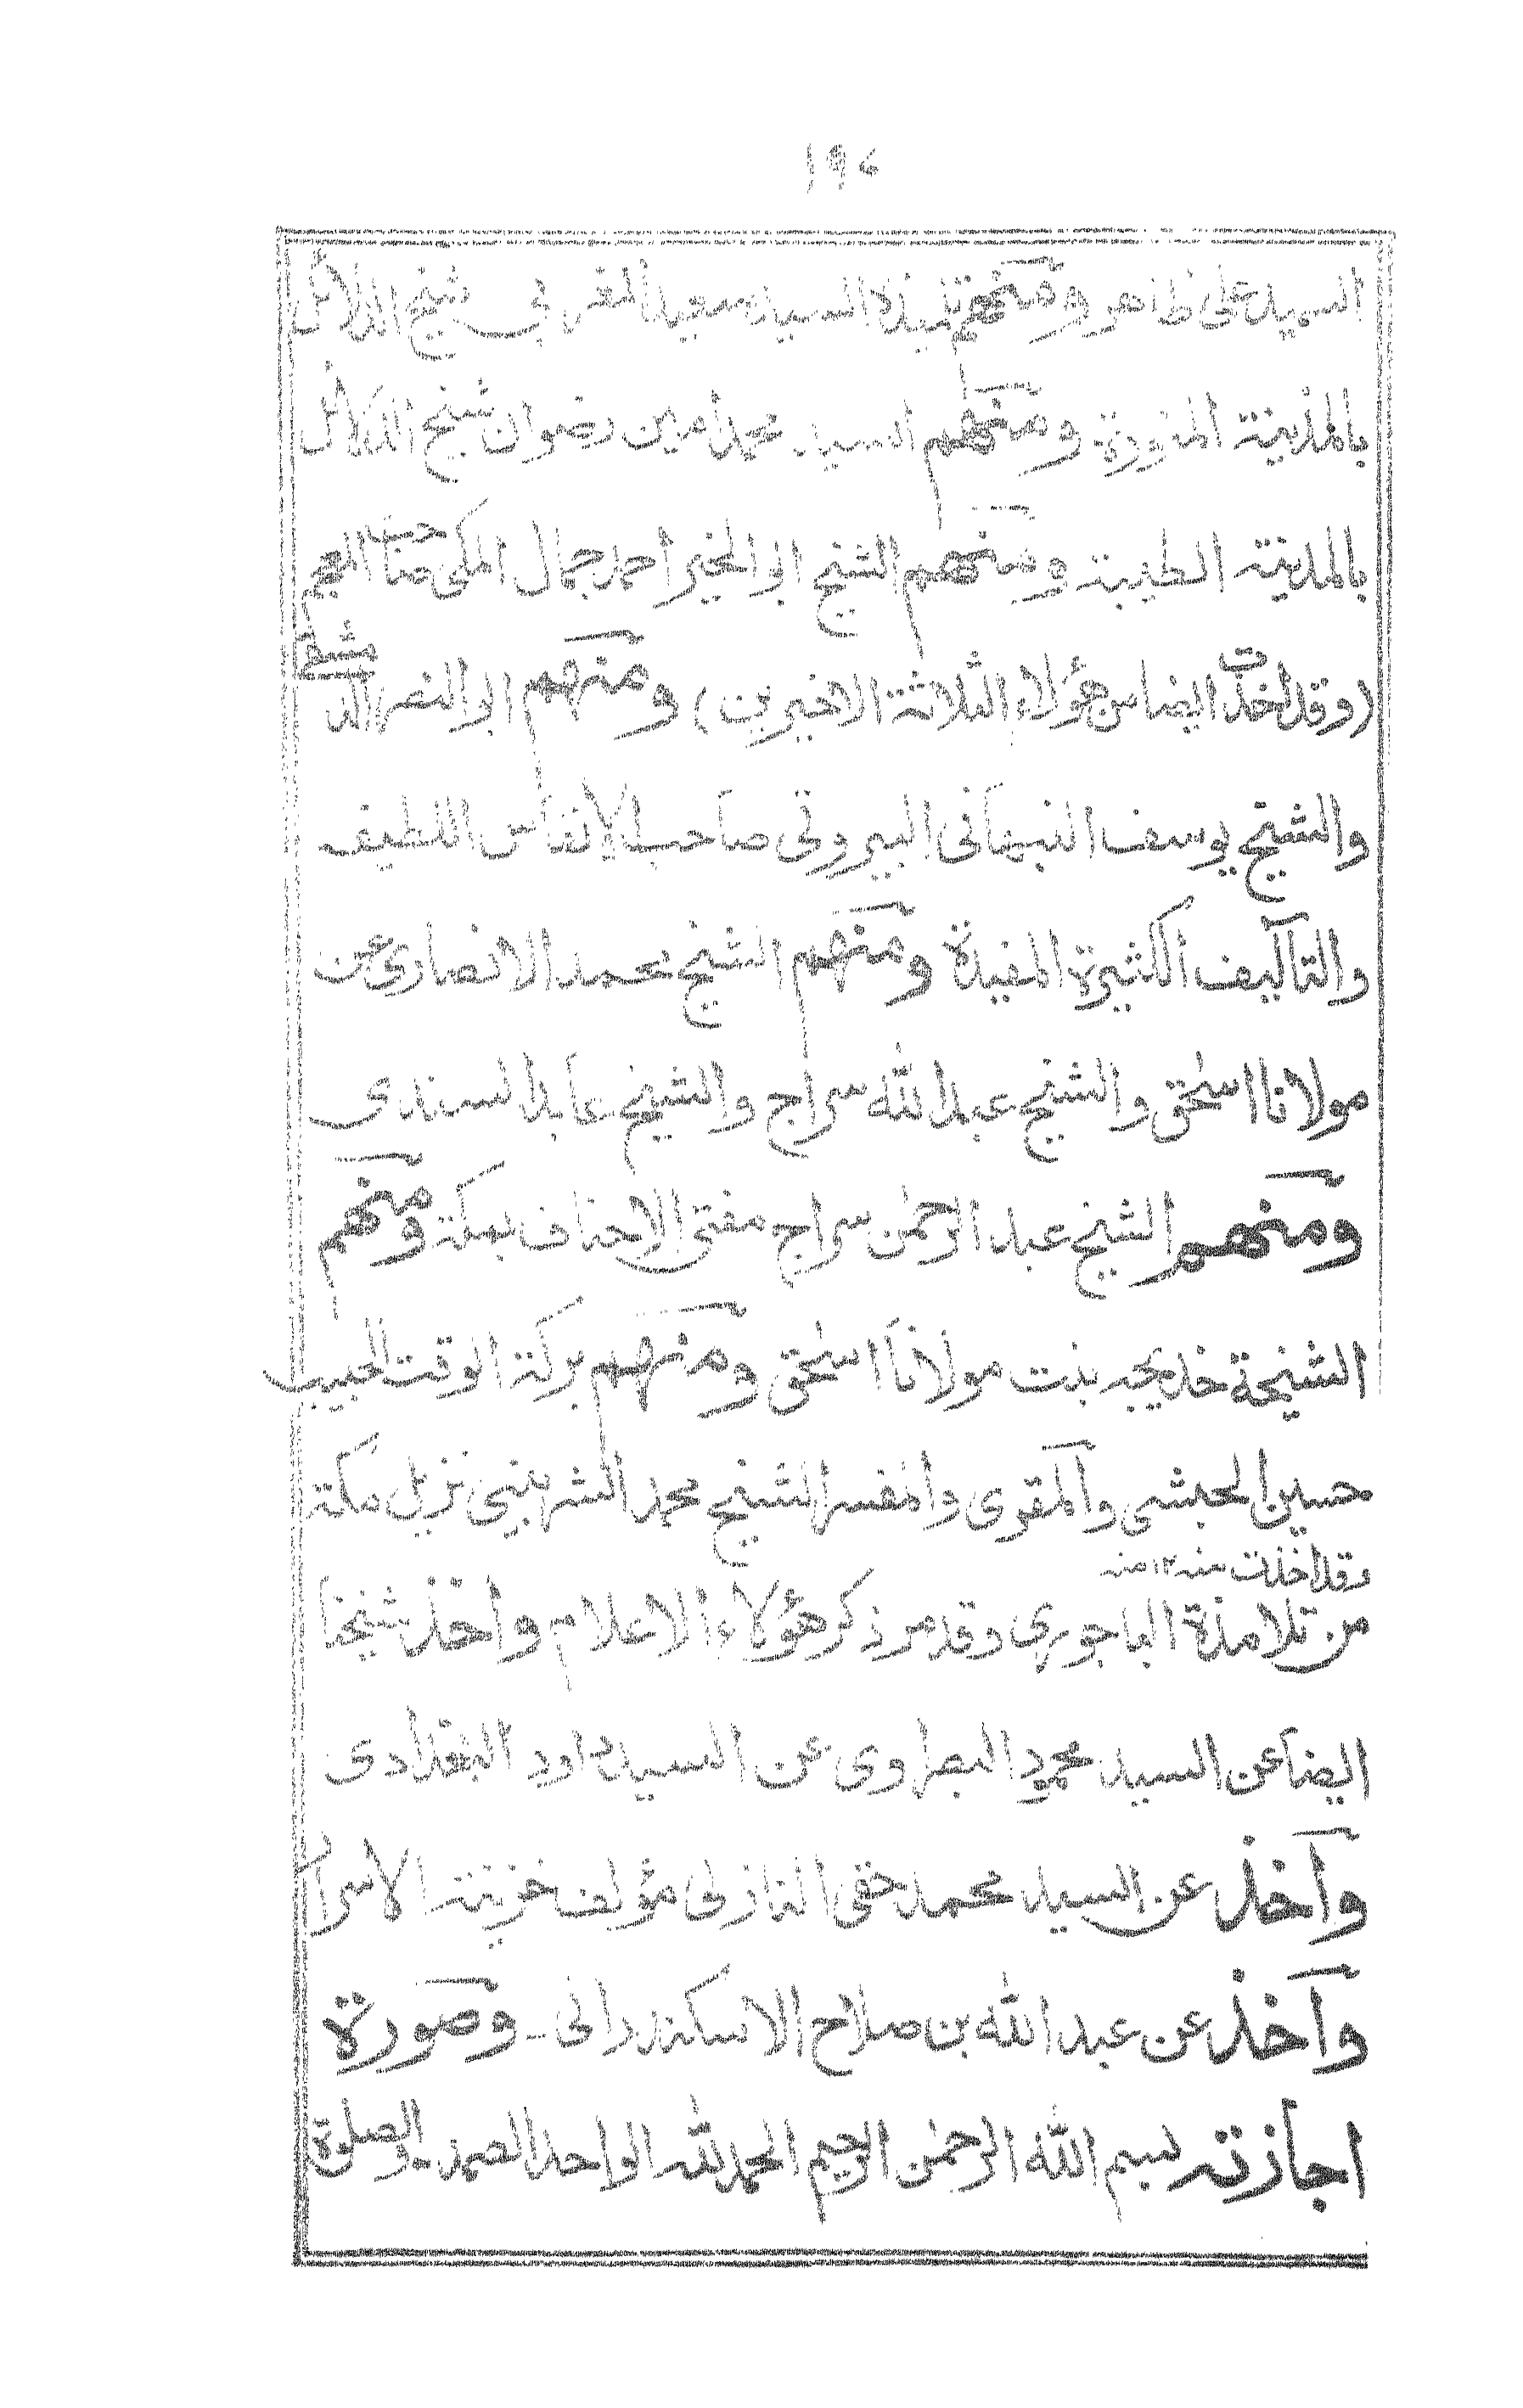 ١٩٤
السيد على ظاهر ومنهم تلميذه السيد سعيد المغربي شيخ الدلائل
بالمدينة المنورة ومنهم السيد محمد امين رضوان شيخ الدلائل
بالمدينة الطيبة ومنهم الشيخ ابو الخير احمد جمال المكى صاحب المعجم
(وقد اخذت ايضا من هؤلاء الثلاثة الاخيرين) ومنهم ابو النصر الدمشقى
والشيخ يوسف النبهانى البيروتى صاحب الانفاس اللطيفه
والتآليف الكثيرة المفيدة ومنهم الشيخ محمد الانصارى عن
مولانا اسحٰق والشيخ عبد الله سراج والشيخ عابد السندى
ومنهم الشيخ عبد الرحمٰن سراج مفتى الاحناف بمكة ومنهم
الشيخة خديجه بنت مولانا اسحٰق ومنهم بركة الوقت الحبيب
حسين الحبشى والمقرى والمفسر الشيخ محمد الشربينى نزيل مكة
وقد اخذت منه ١٢ منه
من تلامذة الباجورى وقد مر ذكر هؤلاء الاعلام واخذ شيخنا
ايضا عن السيد محمود البصراوى عن السيد داود البغدادى
وآخذ عن السيد محمد حقى النازلى مؤلف خزينة الاسرار
وآخذ عن عبد الله بن صلاح الاسكندرانى - وصورة
اجازته بسم الله الرحمٰن الرحيم الحمد لله الواحد الصمد - والصلوة